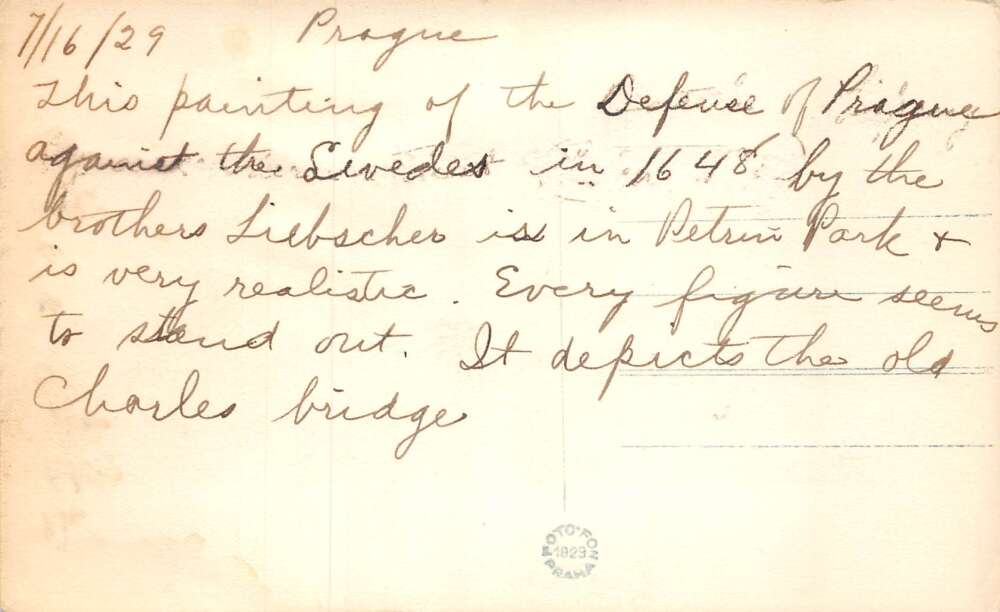 7/16/29 Prague
This painting of the Defense of Prague
against the Swedes in 1648 by the
brothers Liebscher is in Petrin Park +
is very realistic. Every figure seems
to stand out. It depicts the old
Charles bridge
FOTO-FON
1929
PRAHA